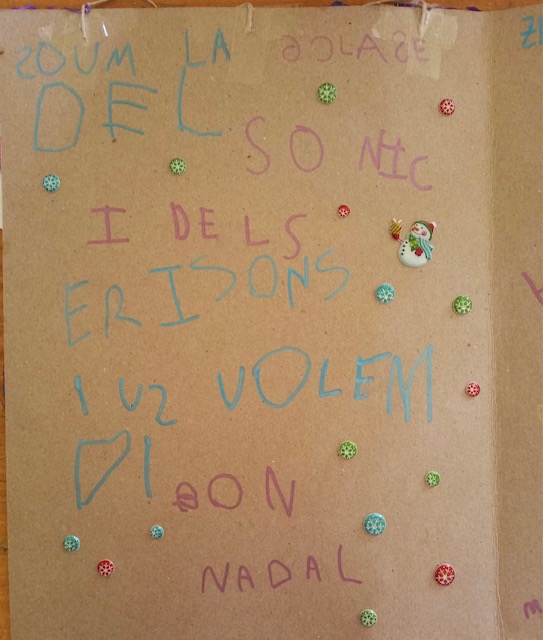 SOUM LA CLASE
DEL
SONIC
I DELS
ERISONS
I US VOLEM
DI BON
NADAL